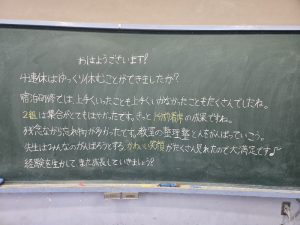 おはようございます!
4連休はゆっくり休むことができましたか?
宿泊研修では、上手くいったことも上手くいかなかったこともたくさんでしたね。
2組は集合がとてもはやかったです。きっと の成果ですね。
残念ながら忘れ物が多かったです。教室の整理整とんをがんばっていこう。
先生はみんなのがんばろうとする、かわいい笑顔がたくさん見れたので大満足です♪
経験を生かして、また成長していきましょう!